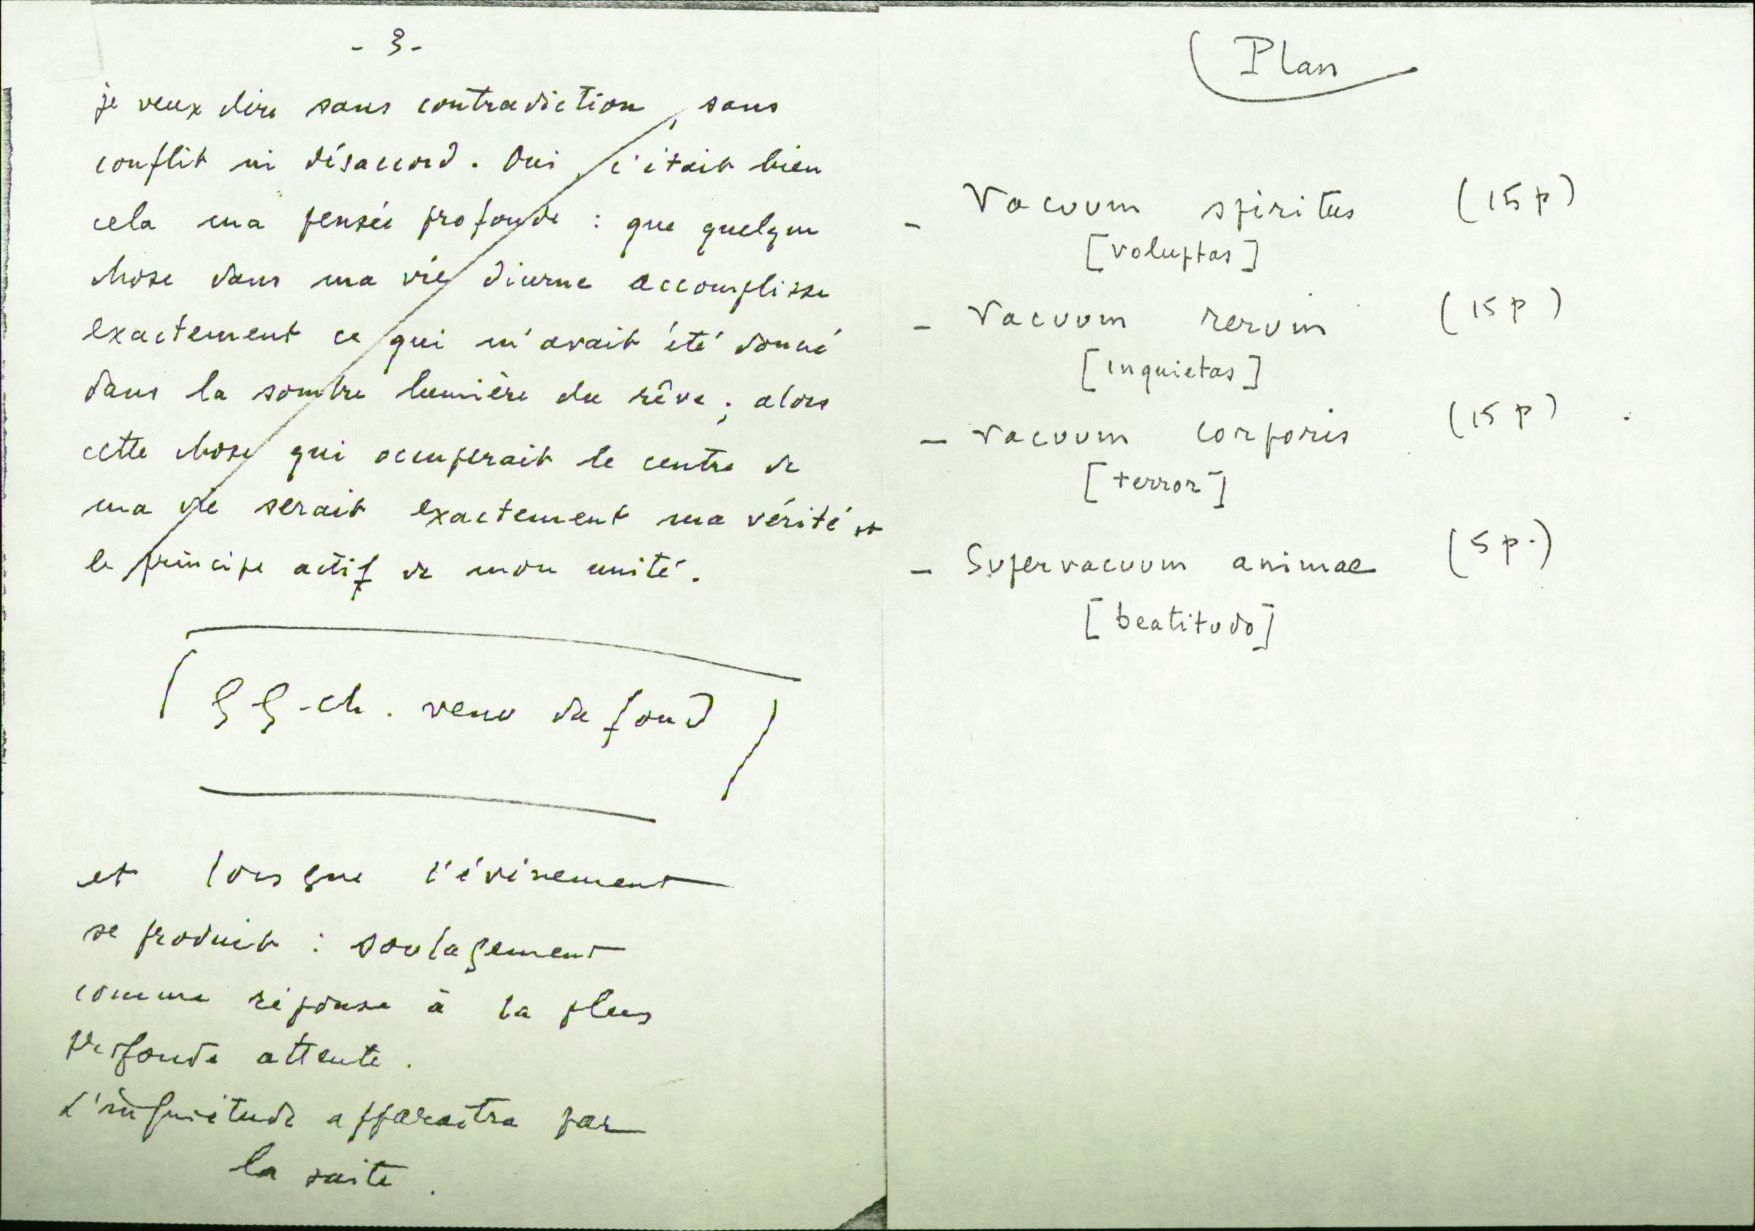 - 3 -
je veux dire sans contradiction, sans
conflit ni désaccord. Oui, c'était bien
cela ma pensée profonde : que quelque
chose dans ma vie diurne accomplisse
exactement ce qui m'avait été donné
dans la sombre lumière du rêve ; alors
cette chose qui occuperait le centre de
ma vie serait exactement ma vérité et
le principe actif de mon unité.
qq-ch. venu du fond
et lorsque l'évènement
se produit : soulagement
comme réponse à la plus
profonde attente.
L'inquiétude apparaîtra par
la suite.
Plan
- Vacuum spiritus (15 p)
[voluptas]
- Vacuum rerum (15 p)
[inquietas]
- Vacuum corporis (15 p)
[terror]
- Supervacuum animae (5 p.)
[beatitudo]